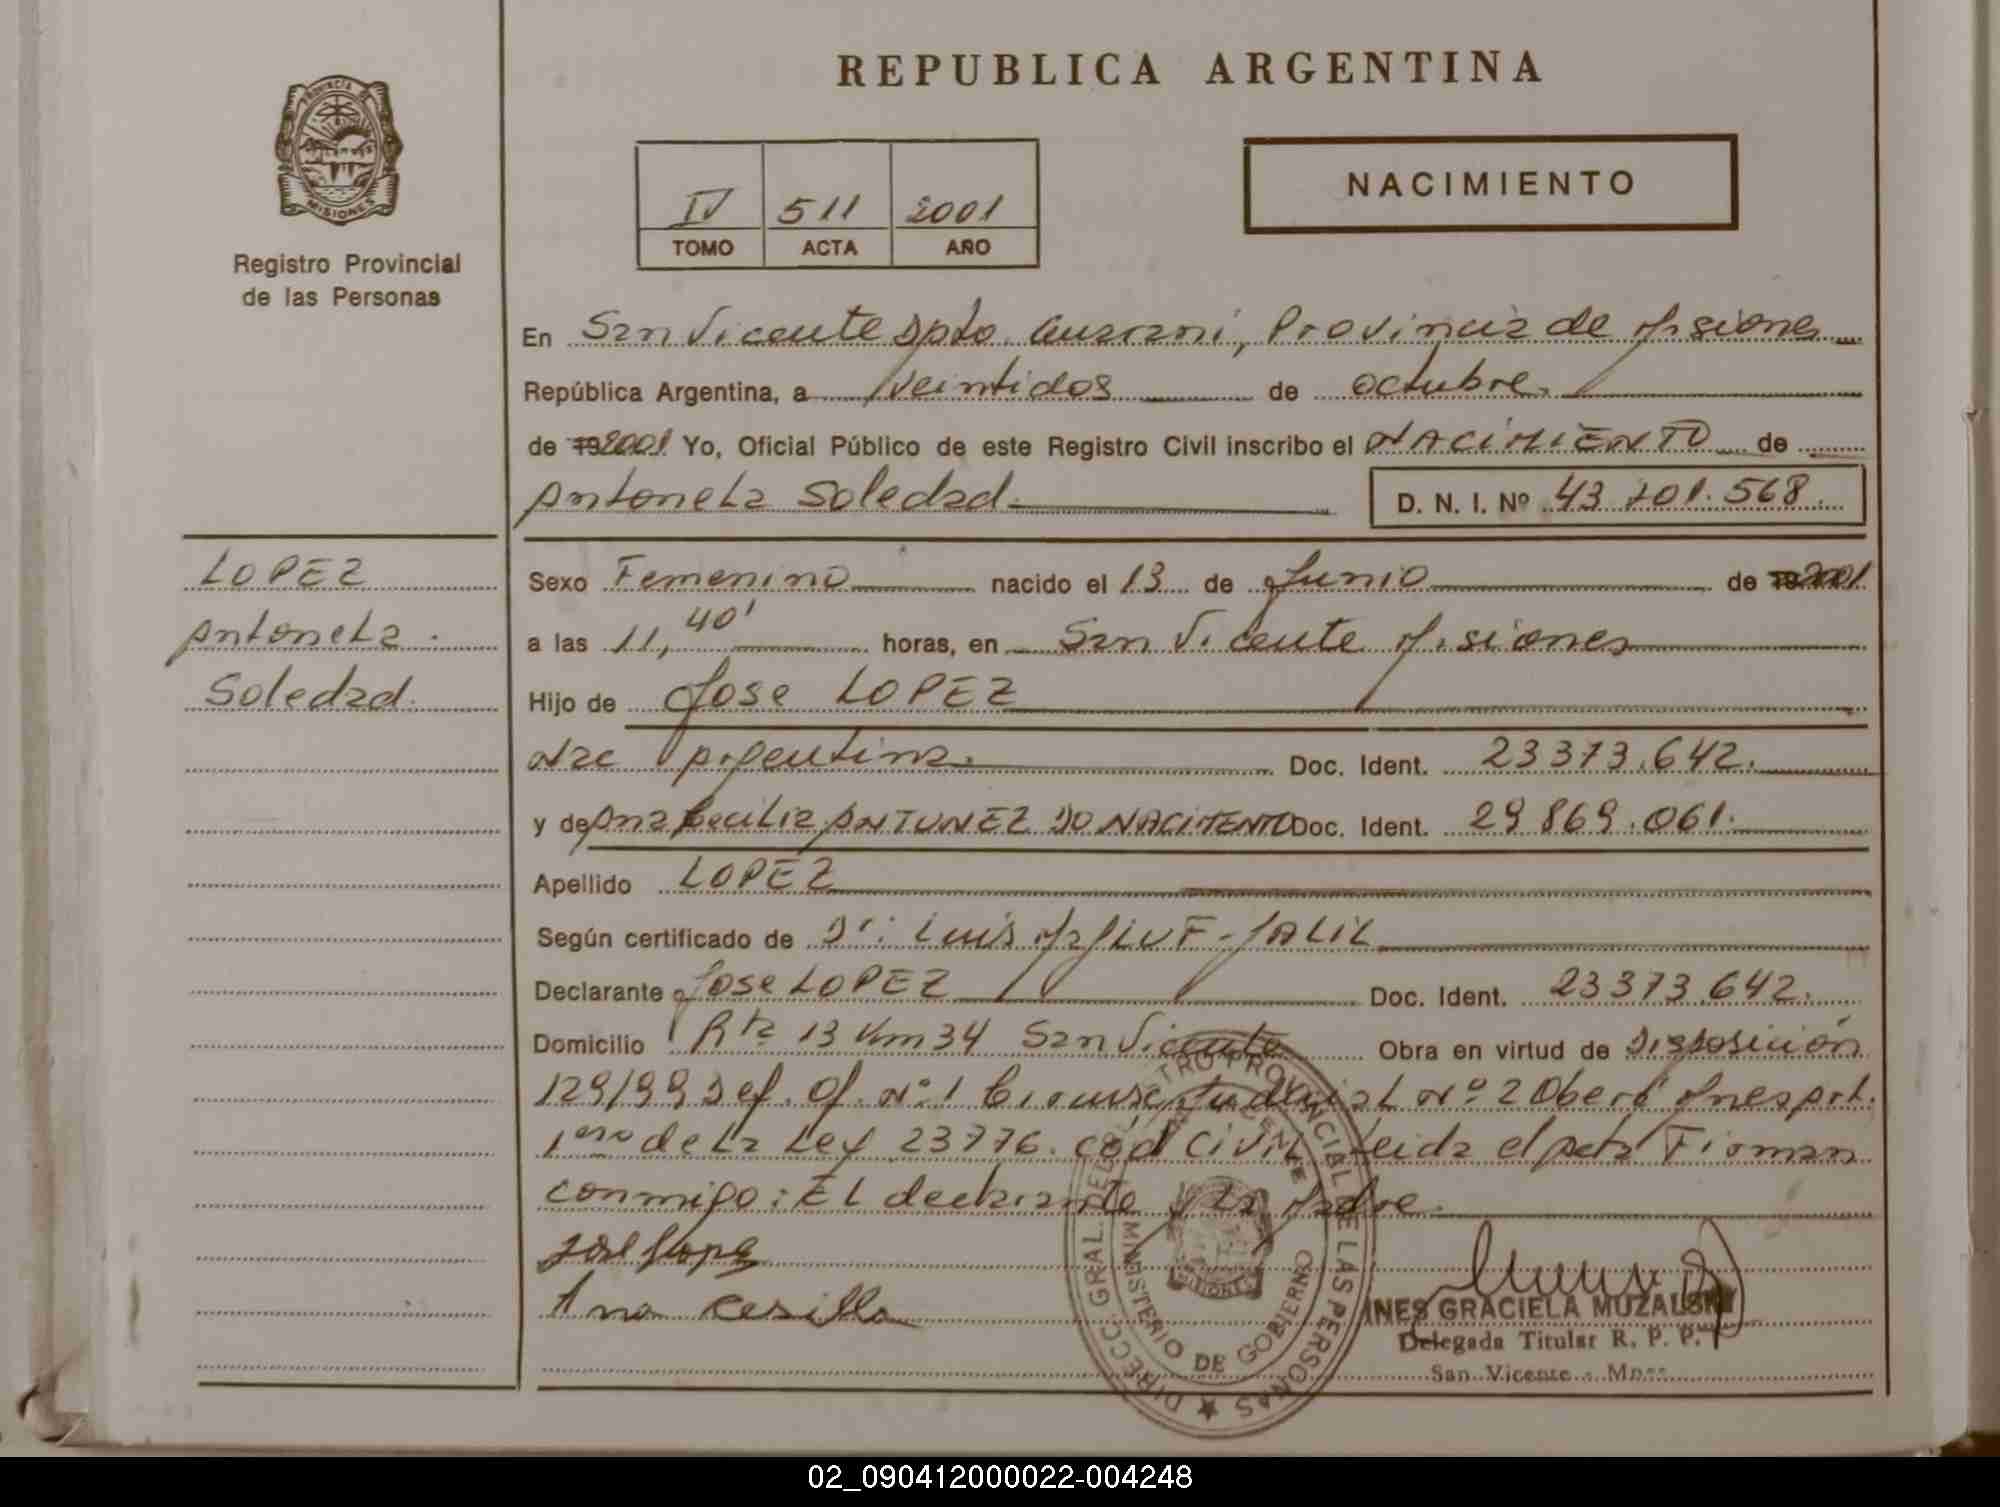 REPUBLICA ARGENTINA
PROVINCIA DE
MISIONES
Registro Provincial
de las Personas
IV 511 2001
TOMO ACTA AÑO
NACIMIENTO
En San Vicente Dpto. Guarani, Provincia de Misiones
República Argentina, a veintidos de octubre
de 19 2001 Yo, Oficial Público de este Registro Civil inscribo el NACIMIENTO de
Antonela Soledad D. N. I. Nº 43 201.568.
LOPEZ
Antonela
Soledad.
Sexo Femenino nacido el 13 de Junio de 19 2001
a las 11, 40' horas, en San Vicente Misiones
Hijo de Jose LOPEZ
Nac Argentina. Doc. Ident. 23373.642.
y de Ana Cecilia ANTUNEZ DO NACIMENTO Doc. Ident. 29 869.061.
Apellido LOPEZ
Según certificado de Dr: Luis F. JALIL
Declarante Jose LOPEZ Doc. Ident. 23373.642.
Domicilio Rta 13 Km 34 San Vicente Obra en virtud de Disposición
129/99 Def. Of. Nº 1 Judicial Nº 2 Oberá
1ero de La Ley 23776. Cód Civil Leida el Acta Firman
conmigo: El declarante y La Madre.
Jose Lopez
Ana Cesilla
DIRECC. GRAL. DEL REGISTRO PROVINCIAL DE LAS PERSONAS
MINISTERIO DE GOBIERNO
MISIONES
INES GRACIELA MUZALSKI
Delegada Titular R. P. P.
San Vicente - Mnes
02_090412000022-004248